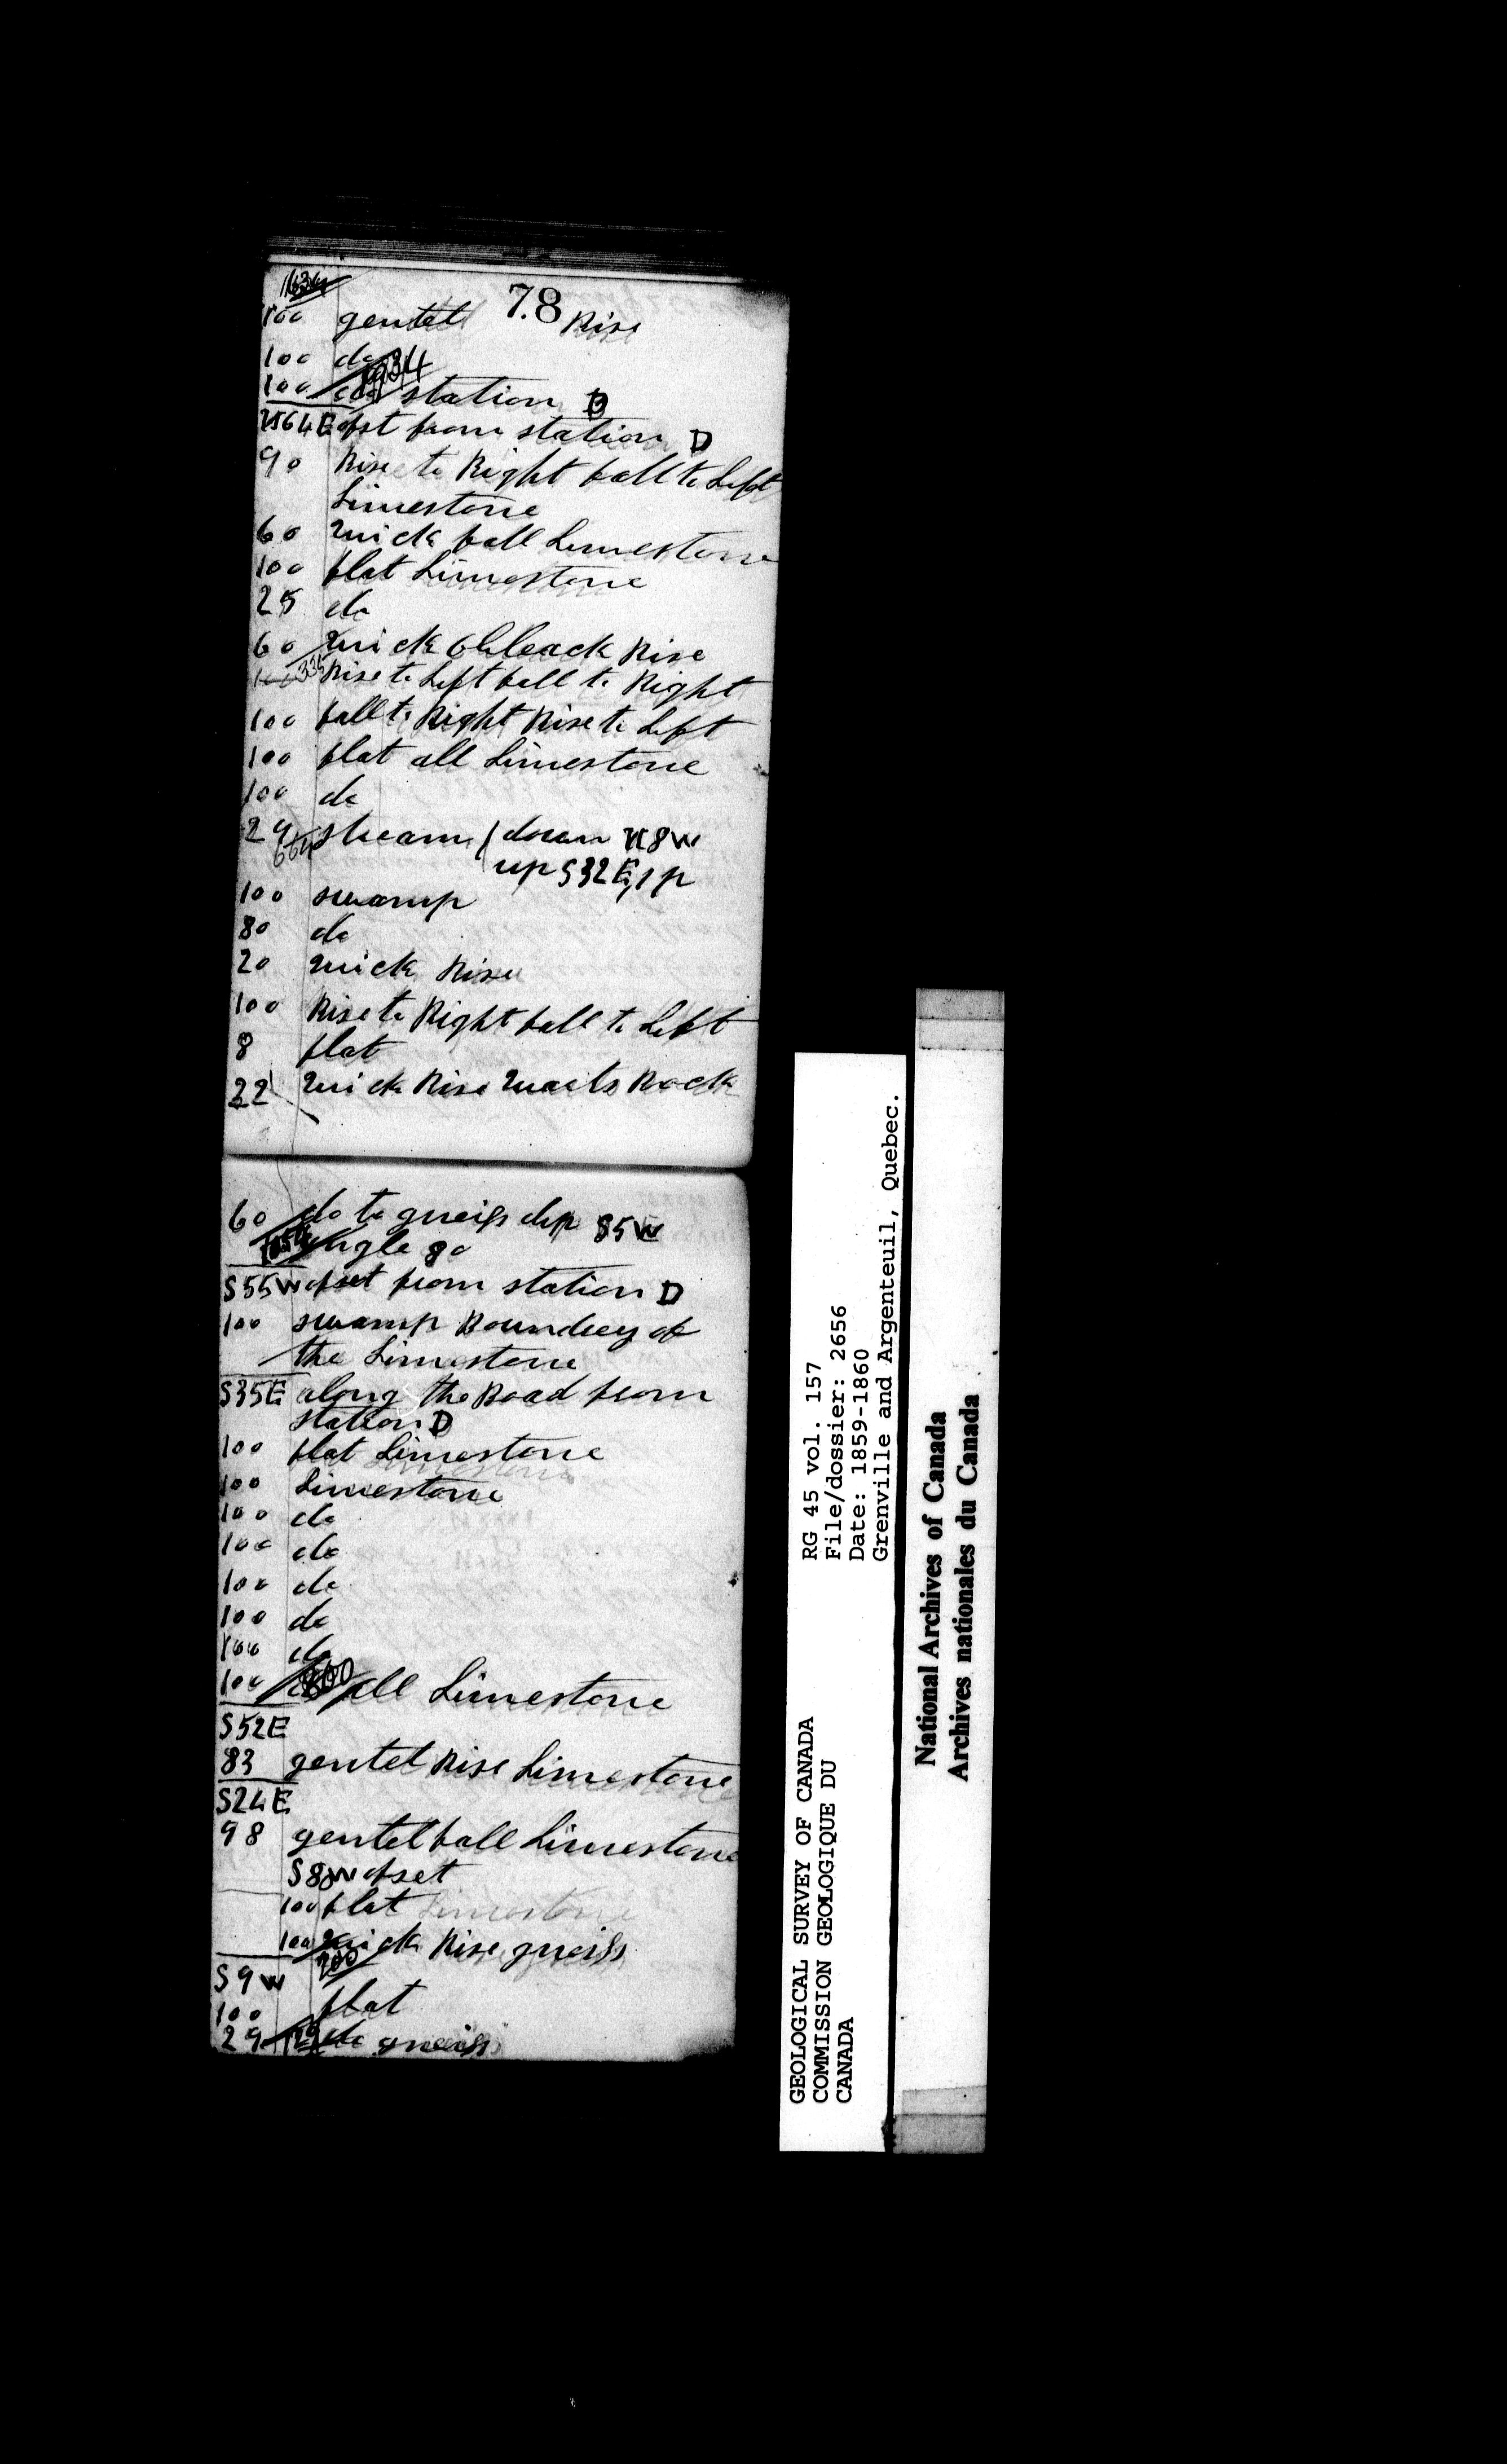 1634
78
100 gentel Rise
100 do
100 do 1934 station D
N64E ofst from station D
90 Rise to Right fall to Left
Limestone
60 quick fall Limestone
100 flat Limestone
25 do
60 quick Rise
335 Rise to Left fall to Right
100 fall to Right Rise to Left
100 flat all Limestone
100 do
29 stream (down N8W
664 up S32E, 1 p
100 swamp
80 do
20 quick Rise
100 Rise to Right fall to Left
8 flat
22 quick Rise quarts Rock
60 do to gneiss dip S5W
1054 angle 80
S55W ofset from station D
100 swamp Boundrey of
the Limestone
S35E along the Road from
station D
100 flat Limestone
100 Limestone
100 do
100 do
100 do
100 do
100 do
100 do 800 all Limestone
S52E
83 gentel Rise Limestone
S24E
98 gentel fall Limestone
S80W ofset
100 flat Limestone
100 quick Rise gneiss
200
S9W
100 flat
29 129 do gneiss
GEOLOGICAL SURVEY OF CANADA
COMMISSION GEOLOGIQUE DU
CANADA
RG 45 vol. 157
File/dossier: 2656
Date: 1859-1860
Grenville and Argenteuil, Quebec.
National Archives of Canada
Archives nationales du Canada